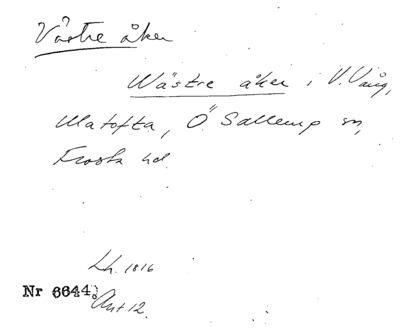 Västre åker
Wästre åker i V. Vång,
Matofta, Ö Sallerup sn,
Frosta hd.
Lh. 1816
Nr 6644:
Akt 12.